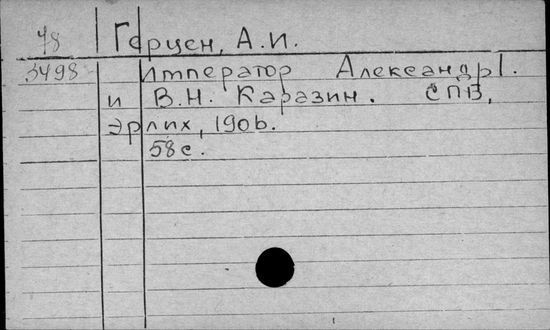 78 Герцен, А.И.
3498 Император Александр I.
и В.Н. Каразин. СПВ,
Эрлих, 1906.
58 с.